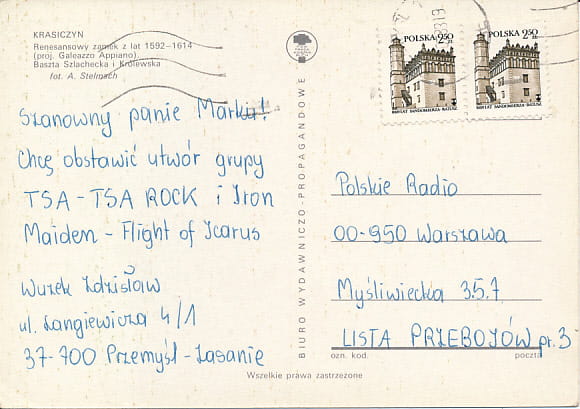 KRASICZYN
Renesansowy zamek z lat 1592–1614
(proj. Galeazzo Appiano).
Baszta Szlachecka i Królewska
fot. A. Stelmach
Szanowny panie Marku!
Chcę obstawić utwór grupy
TSA – TSA ROCK i Iron
Maiden – Flight of Icarus
Wuzek Zdzisław
ul. Langiewicza 4/1
37-700 Przemyśl – Zasanie
BIURO WYDAWNICZO-PROPAGANDOWE
POLSKA 2,50 ZŁ
800 LAT SANDOMIERZA-RATUSZ
POLSKA 2,50 ZŁ
800 LAT SANDOMIERZA-RATUSZ
Polskie Radio
00-950 Warszawa
Myśliwiecka 3.5.7
LISTA PRZEBOJÓW pr. 3
ozn. kod. poczta
Wszelkie prawa zastrzeżone